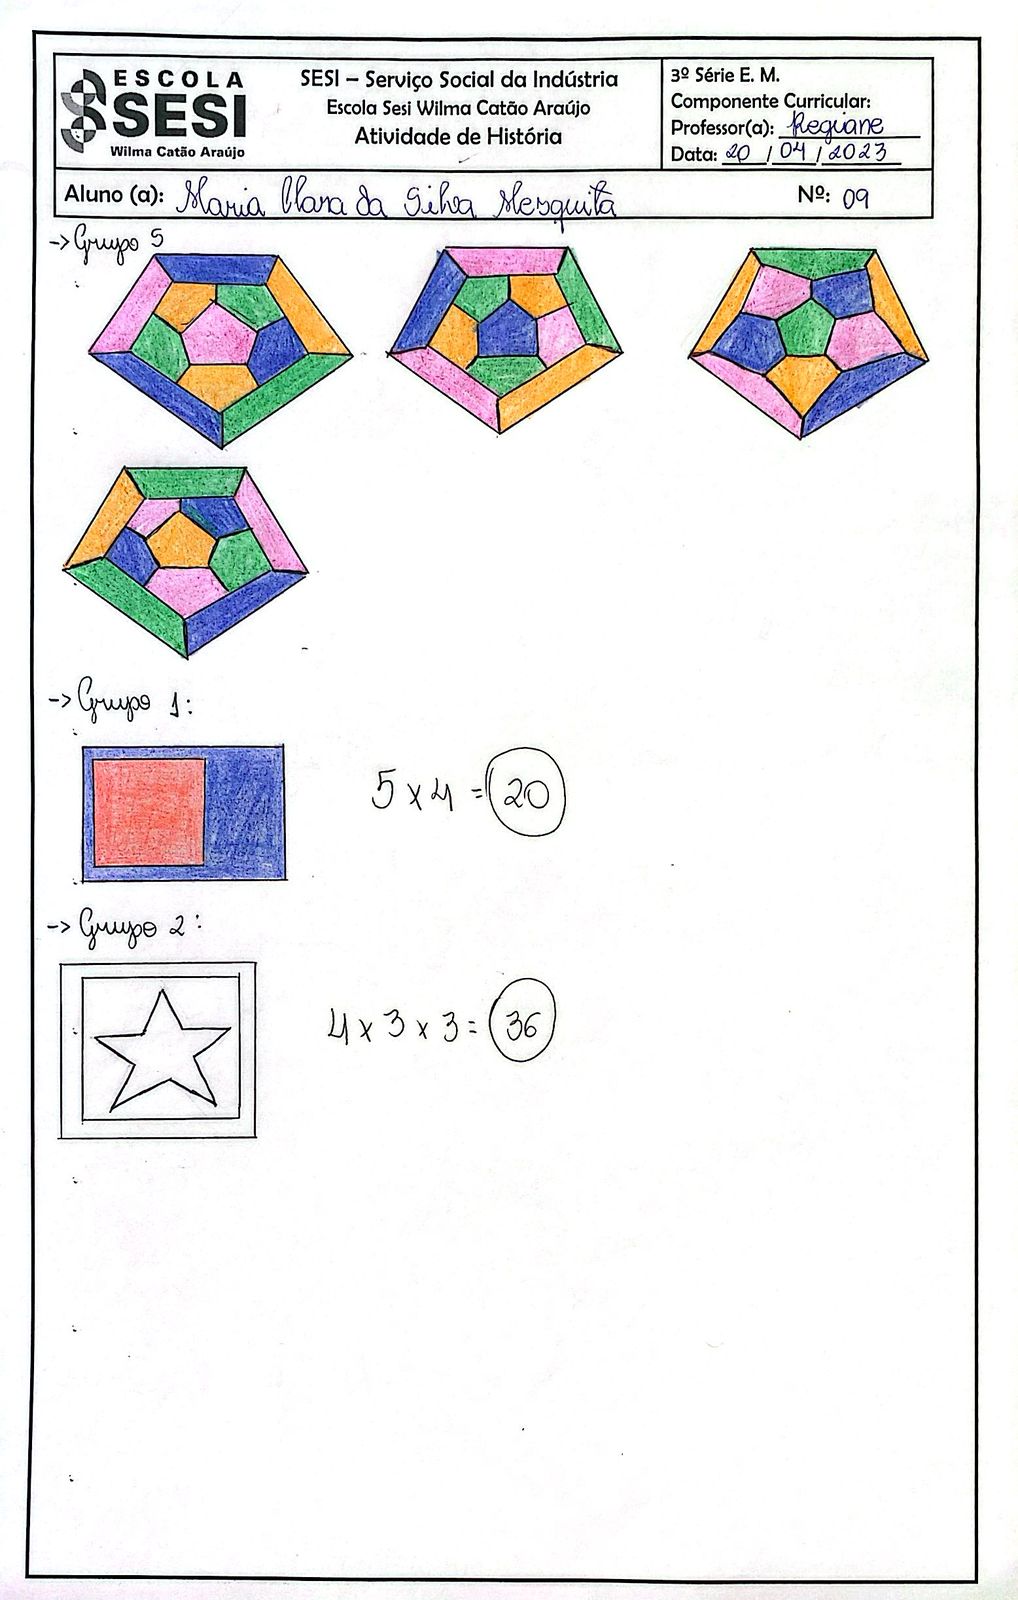 ESCOLA
SESI
Wilma Catão Araújo
SESI – Serviço Social da Indústria
Escola Sesi Wilma Catão Araújo
Atividade de História
3º Série E. M.
Componente Curricular:
Professor(a): Regiane
Data: 20 / 04 / 2023
Aluno (a): Maria Clara da Silva Mesquita Nº: 09
-> Grupo 5
-> Grupo 1:
5 x 4 = 20
-> Grupo 2:
4 x 3 x 3 = 36